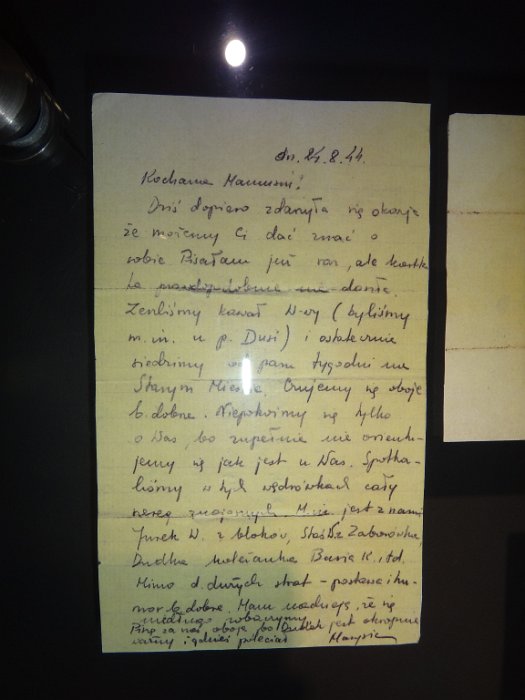 dn. 21.8.44.
Kochana Mamusiu!
Dziś dopiero zdarzyła się okazja
że możemy Ci dać znać o
sobie Pisałam już raz, ale kartka
ta prawdopodobnie nie doszła.
Zeszliśmy kawał W-wy (byliśmy
m. in. u p. Dusi) i ostatecznie
siedzimy od paru tygodni na
Starym Mieście. Czujemy się oboje
b. dobrze. Niepokoimy się tylko
o Was, bo zupełnie nie orientu-
jemy się jak jest u Was. Spotka-
liśmy w tych wędrówkach cały
szereg znajomych M.in. jest z nami
Jurek W. z bloków, Staś Dz Zaborówka,
Dudka Basia K. itd.
Mimo d. dużych strat - postawa i hu-
mor b. dobre. Mam nadzieję, że się
niedługo zobaczymy.
Piszę za nas oboje bo Dudek jest okropnie
ważny i gdzieś poleciał Marysia